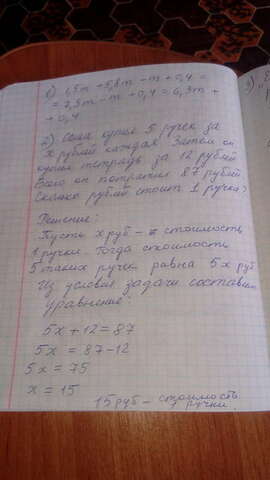 1,5m + 5,8m - m + 0,4 =
= 7,3m - m + 0,4 = 6,3m +
+ 0,4
2) Сема купил 5 ручек за
x рублей каждая. Затем он
купил тетрадь за 12 рублей
Всего он потратил 87 рублей
Сколько рублей стоит 1 ручка?
Решение:
Пусть x руб - стоимость
1 ручки. Тогда стоимость
5 таких ручек равна 5x руб
Из условия задачи составим
уравнение:
5x + 12 = 87
5x = 87 - 12
5x = 75
x = 15
15 руб - стоимость
ручки.